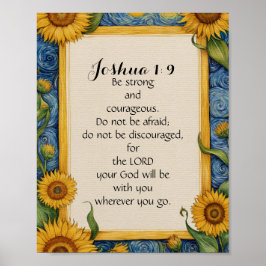 Joshua 1:9
Be strong
and
courageous.
Do not be afraid;
do not be discouraged,
for
the LORD
your God will be
with you
wherever you go.